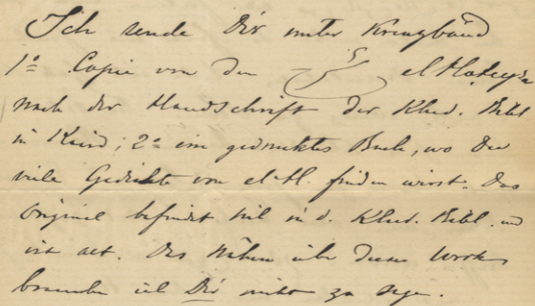 Ich sende Dir unter Kreuzband
1º Copie von den el Hotey'a
nach der Handschrift der Khed. Bibl
in Kairo; 2º ein gedrucktes Buch, wo Du
viele Gedichte von el H. finden wirst. Das
Original befindet sich in d. Khed. Bibl. und
ist alt. Das Nähere über dieses Werk
brauche ich Dir nicht zu sagen.